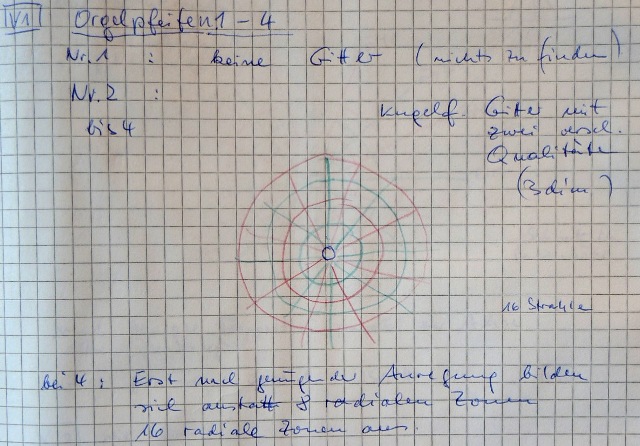 V1 Orgelpfeifen 1 - 4
Nr. 1 : keine Gitter (nichts zu finden)
Nr. 2 :
bis 4
Kugelf. Gitter mit
zwei versch.
Qualitäten
(3dim)
16 Strahlen
bei 4: Erst nach genügender Anregung bilden
sich anstatt 8 radialen Zonen
16 radiale Zonen aus.